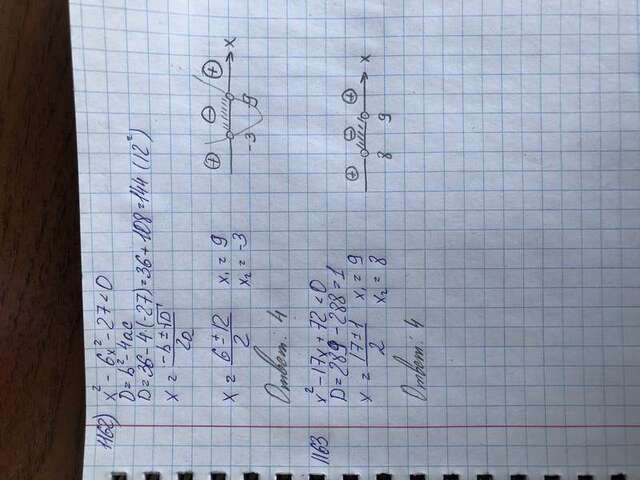 1162) x² - 6x² - 27 < 0
D = b² - 4ac
D = 36 - 4·(-27) = 36 + 108 = 144 (12²)
x = (-b ± √D) / 2a
x = (6 ± 12) / 2   x₁ = 9
x₂ = -3
+ - +
-3 9 x
Ответ: 4
1163 x² - 17x + 72 < 0
D = 289 - 288 = 1
x = (17 ± 1) / 2   x₁ = 9
x₂ = 8
+ - +
8 9 x
Ответ: 4